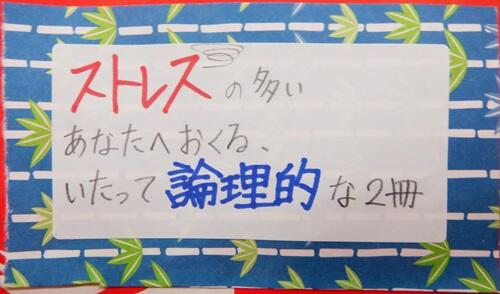 ストレスの多い
あなたへおくる、
いたって論理的な2冊